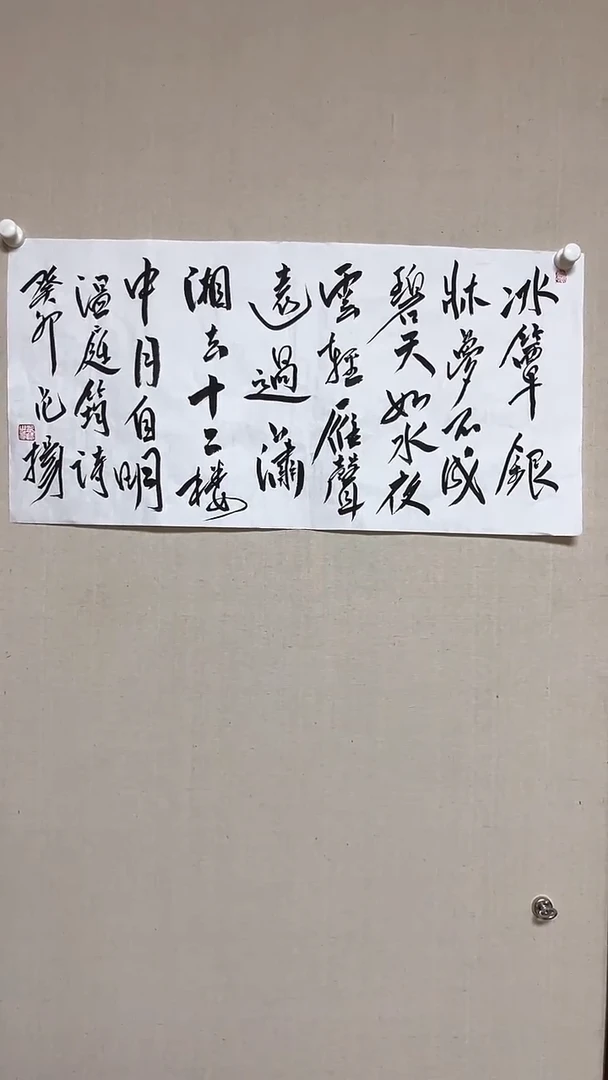 冰簟銀
牀夢不成
碧天如水夜
雲輕雁聲
遠過瀟
湘去十二楼
中月自明
温庭筠詩
癸卯范揚